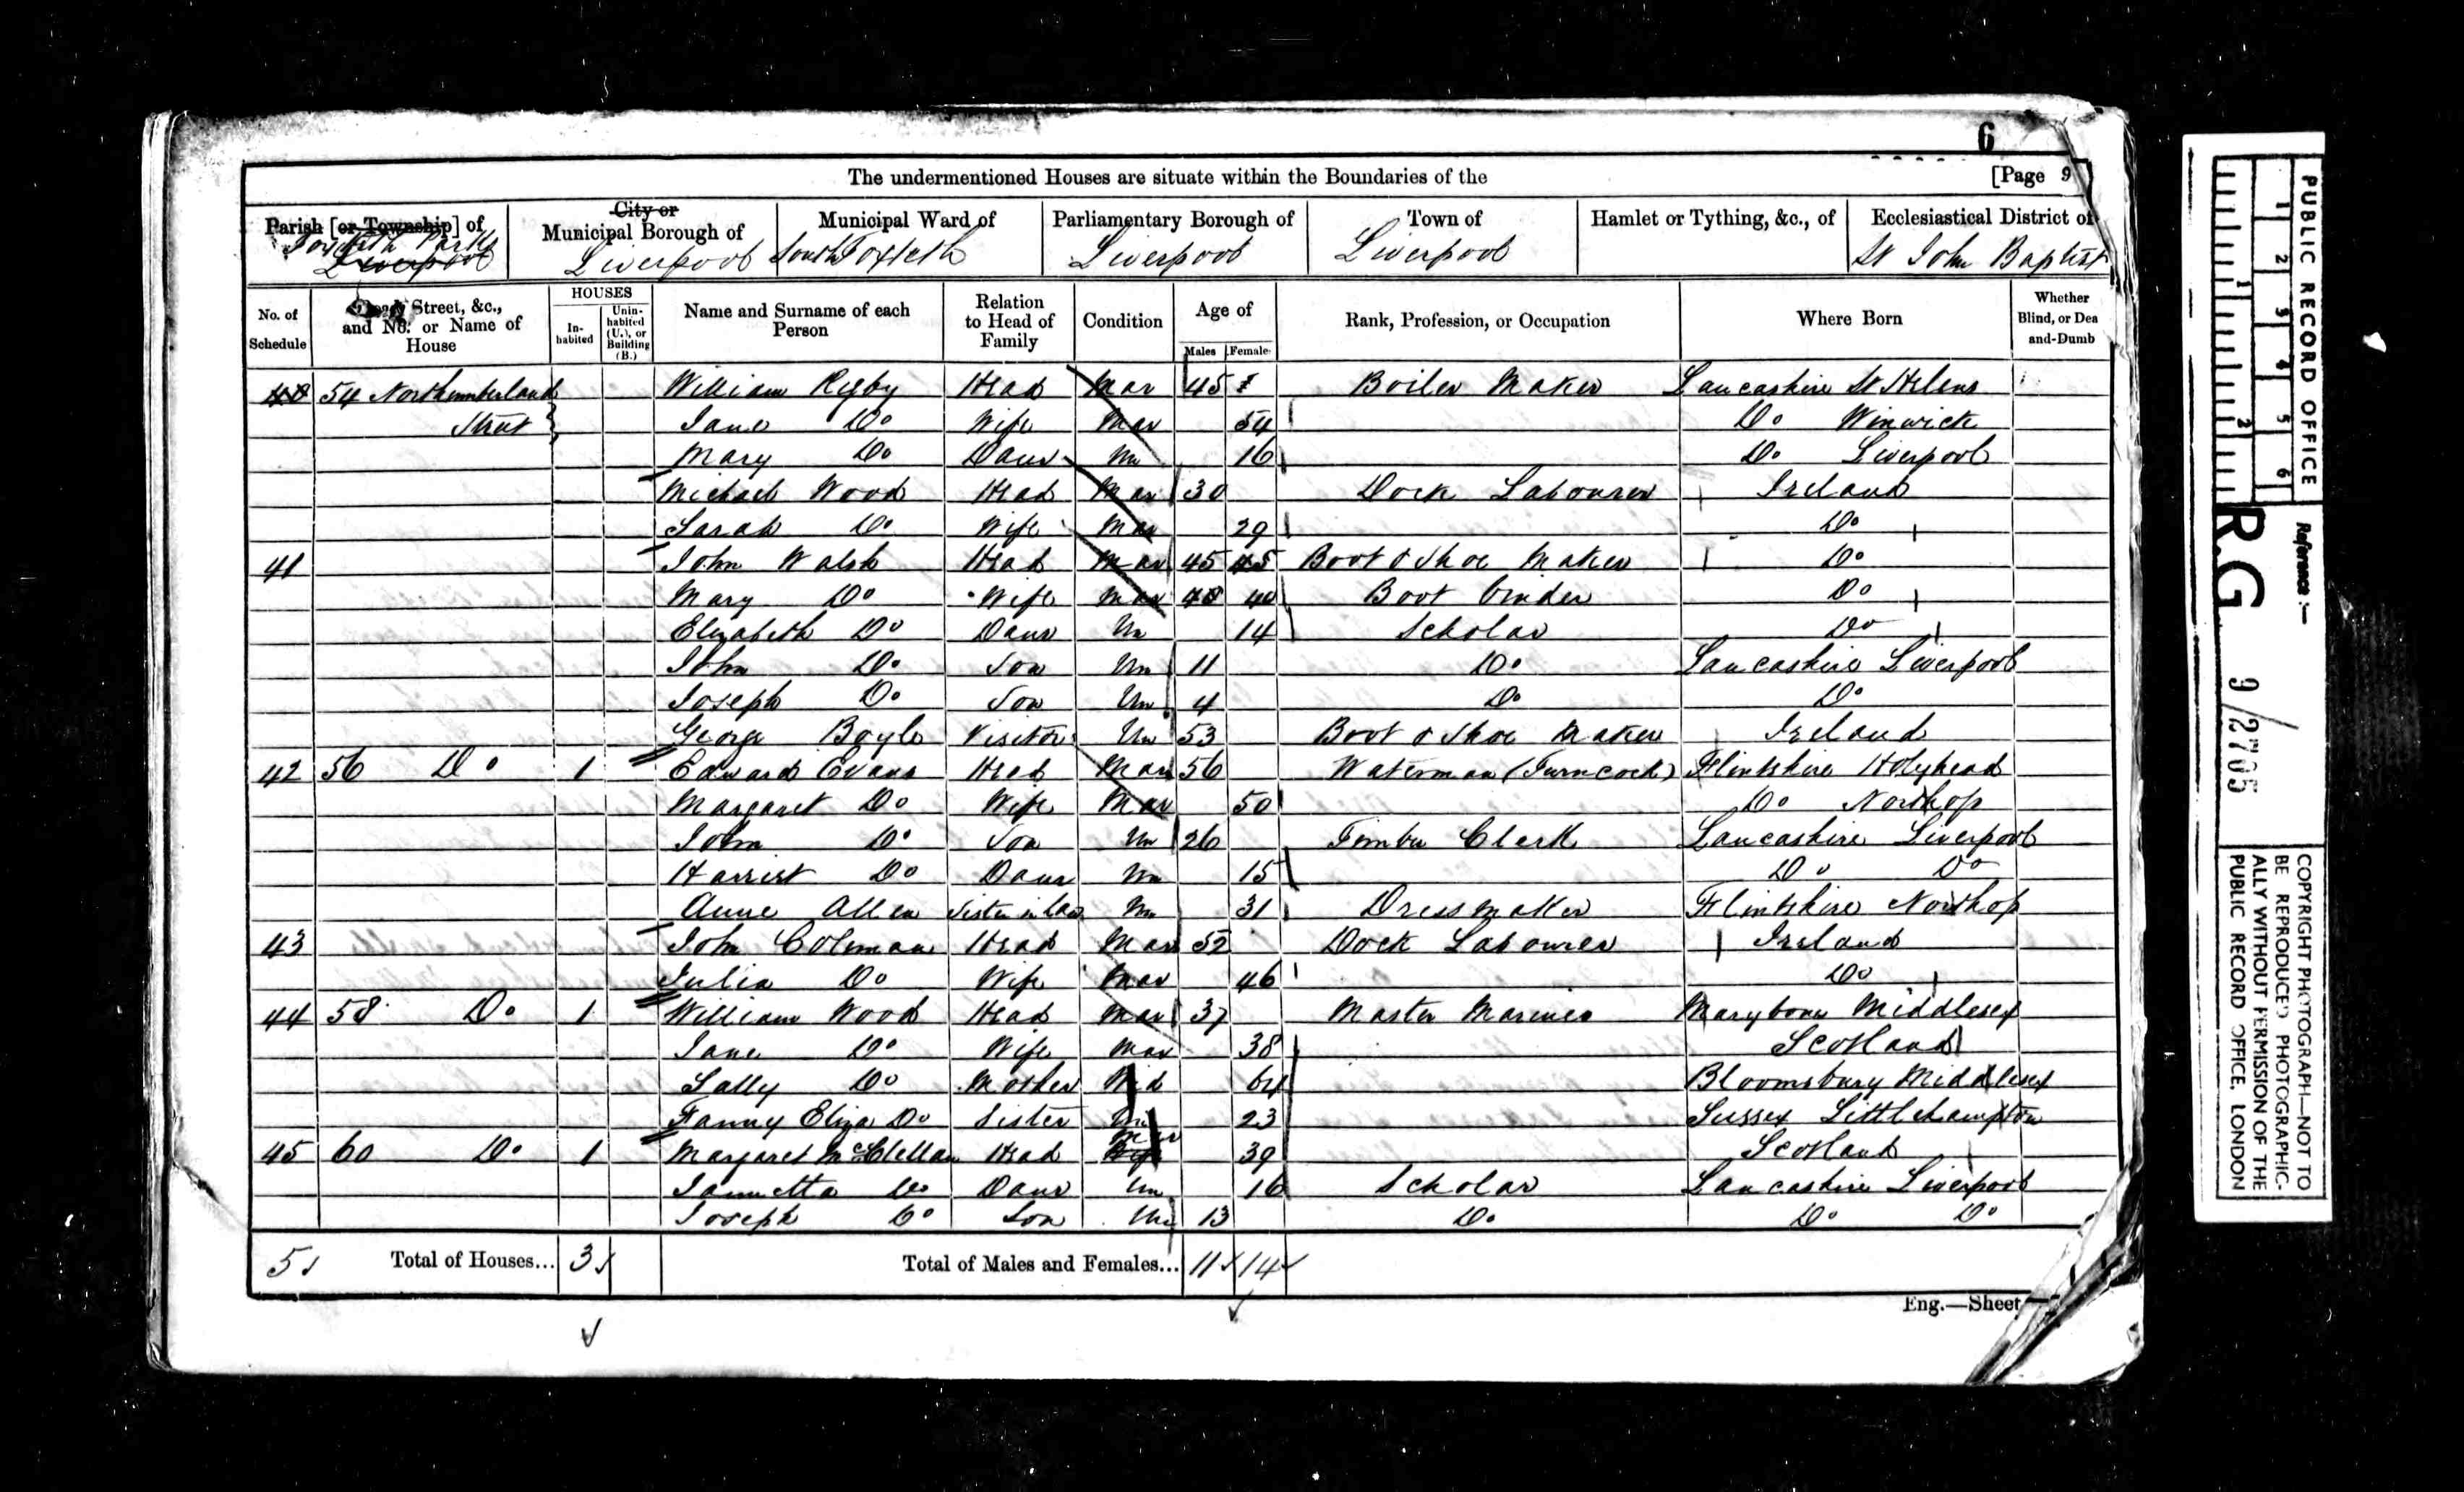 6
The undermentioned Houses are situate within the Boundaries of the [Page 9
Parish [or Township] of City or Municipal Borough of Municipal Ward of Parliamentary Borough of Town of Hamlet or Tything, &c., of Ecclesiastical District of
Toxteth Park Liverpool Liverpool South Toxteth Liverpool Liverpool St John Baptist
No. of Schedule Street, &c., and No. or Name of House HOUSES In-habited Unin-habited (U.), or Building (B.) Name and Surname of each Person Relation to Head of Family Condition Age of Males Female Rank, Profession, or Occupation Where Born Whether Blind, or Dea and-Dumb
40 54 Northumberland William Rigby Head Mar 45 Boiler Maker Lancashire St Helens
Street Jane Do Wife Mar 54 Do Winwick
Mary Do Daur Un 16 Do Liverpool
Michael Wood Head Mar 30 Dock Labourer Ireland
Sarah Do Wife Mar 29 Do
41 John Walsh Head Mar 45 45 Boot & Shoe Maker Do
Mary Do Wife Mar 40 40 Boot binder Do
Elizabeth Do Daur Un 14 Scholar Do
John Do Son Un 11 Do Lancashire Liverpool
Joseph Do Son Un 4 Do Do
George Boyle Visitor Un 53 Boot & Shoe Maker Ireland
42 56 Do 1 Edward Evans Head Mar 56 Waterman (Turncock) Flintshire Holyhead
Margaret Do Wife Mar 50 Do Northop
John Do Son Un 26 Timber Clerk Lancashire Liverpool
Harriet Do Daur Un 15 Do Do
Anne Allen Sister in law Un 31 Dressmaker Flintshire Northop
43 John Coleman Head Mar 52 Dock Labourer Ireland
Julia Do Wife Mar 46 Do
44 58 Do 1 William Wood Head Mar 37 Master Mariner Marybone Middlesex
Jane Do Wife Mar 38 Scotland
Sally Do Mother Wid 64 Bloomsbury Middlesex
Fanny Eliza Do Sister Un 23 Sussex Littlehampton
45 60 Do 1 Margaret McClellan Head Mar 39 Scotland
Jannetta Do Daur Un 16 Scholar Lancashire Liverpool
Joseph Do Son Un 13 Do Do Do
5 Total of Houses... 3 Total of Males and Females... 11 14
Eng.—Sheet
PUBLIC RECORD OFFICE
1 2 3 4 5 6
1 2
Reference:—
R.G. 9/2705
COPYRIGHT PHOTOGRAPH—NOT TO
BE REPRODUCED PHOTOGRAPHIC-
ALLY WITHOUT PERMISSION OF THE
PUBLIC RECORD OFFICE, LONDON